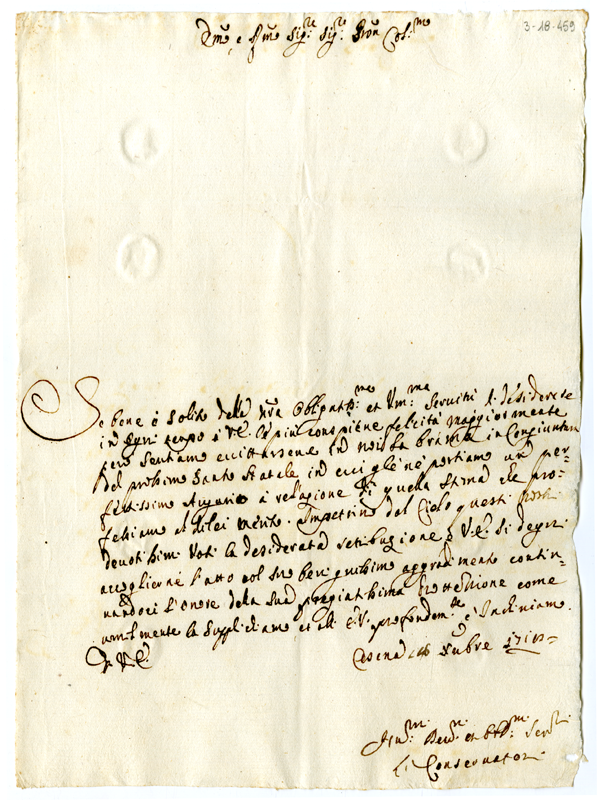 3-18-459
Emo, e Rmo Sigre Sigre Pron Colmo
Se bene è solito della nra Obbligattma et Vmma Servitù il desiderare
in ogni tempo à V.E. le più conspicue felicità maggiormente
però sentiamo eccittarsene in noi la brama in Congiuntura
del prossimo Santo Natale in cui gliè ne portiamo un per
fettissimo Augurio à relazione di quella stima che pro-
fessiamo al di lei merito. Impetrino dal Cielo questi nostri
devotissimi Voti la desiderata retribuzione e V.E. si degni
accoglierne l'atto col suo benignissimo aggradimento contin-
uandoci l'onore della sua pregiatissima Protettione come
umilmente la supplichiamo et all' E.V. profondemte c'Inchiniamo.
Di V.E.
Cesena Xbre
Humi Devmi et Obbmi Serri
Li Conservatori